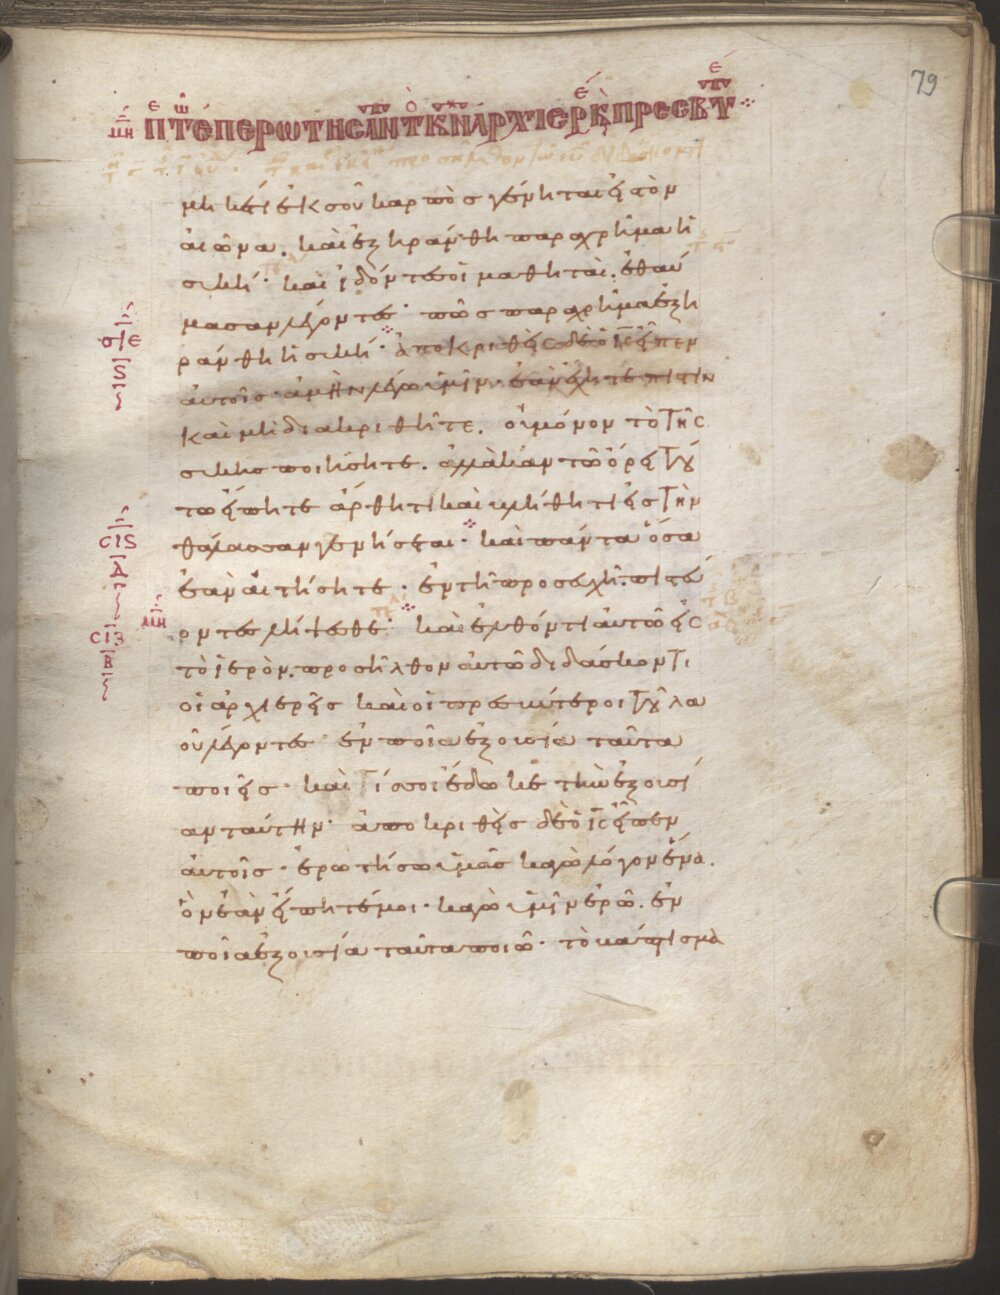 79
μηκέτι ἐκ σοῦ καρπὸς γένηται εἰς τὸν
αἰῶνα. καὶ ἐξηράνθη παραχρῆμα ἡ
συκῆ· καὶ ἰδόντες οἱ μαθηταὶ. ἐθαύ
μασαν λέγοντες· πῶς παραχρῆμα ἐξη
ράνθη ἡ συκῆ· ἀποκριθεὶς δὲ ὁ ις εἶπεν
αὐτοῖς· ἀμὴν λέγω ὑμῖν· ἐὰν ἔχητε πίστιν
καὶ μὴ διακριθῆτε. οὐ μόνον τὸ τῆς
συκῆς ποιήσητε. ἀλλὰ κἂν τῶ ὄρει τού
τω εἴπητε ἄρθητι καὶ βλήθητι εἰς τὴν
θάλασσαν γενήσεται· καὶ πάντα ὅσα
ἐὰν αἰτήσητε· ἐν τῆ προσευχῆ. πιστεύ
οντες λήψεσθε· καὶ ἐλθόντι αὐτῶ εἰς
τὸ ἱερὸν. προσῆλθον αὐτῶ διδάσκοντι
οἱ ἀρχιερεῖς καὶ οἱ πρεσβύτεροι τοῦ λα
οῦ λέγοντες· ἐν ποία ἐξουσία ταῦτα
ποιεῖς· καὶ τίς σοι ἔδωκε τὴν ἐξουσί
αν ταύτην· ἀποκριθεὶς δὲ ὁ ις εἶπεν
αὐτοῖς· ἐρωτήσω ὑμᾶς κἀγὼ λόγον ἕνα.
ὃν ἐὰν εἴπητέ μοι· κἀγὼ ὑμῖν ἐρῶ. ἐν
ποία ἐξουσία ταῦτα ποιῶ· τὸ βάπτισμα
σιε
ς
σις
δ
μη
σιζ
β